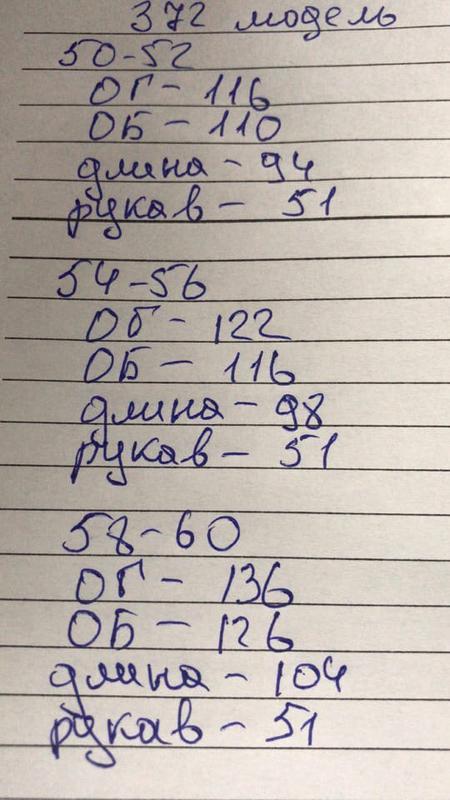 372 модель
50-52
ОГ - 116
ОБ - 110
длина - 94
рукав - 51
54-56
ОГ - 122
ОБ - 116
длина - 98
рукав - 51
58-60
ОГ - 136
ОБ - 126
длина - 104
рукав - 51